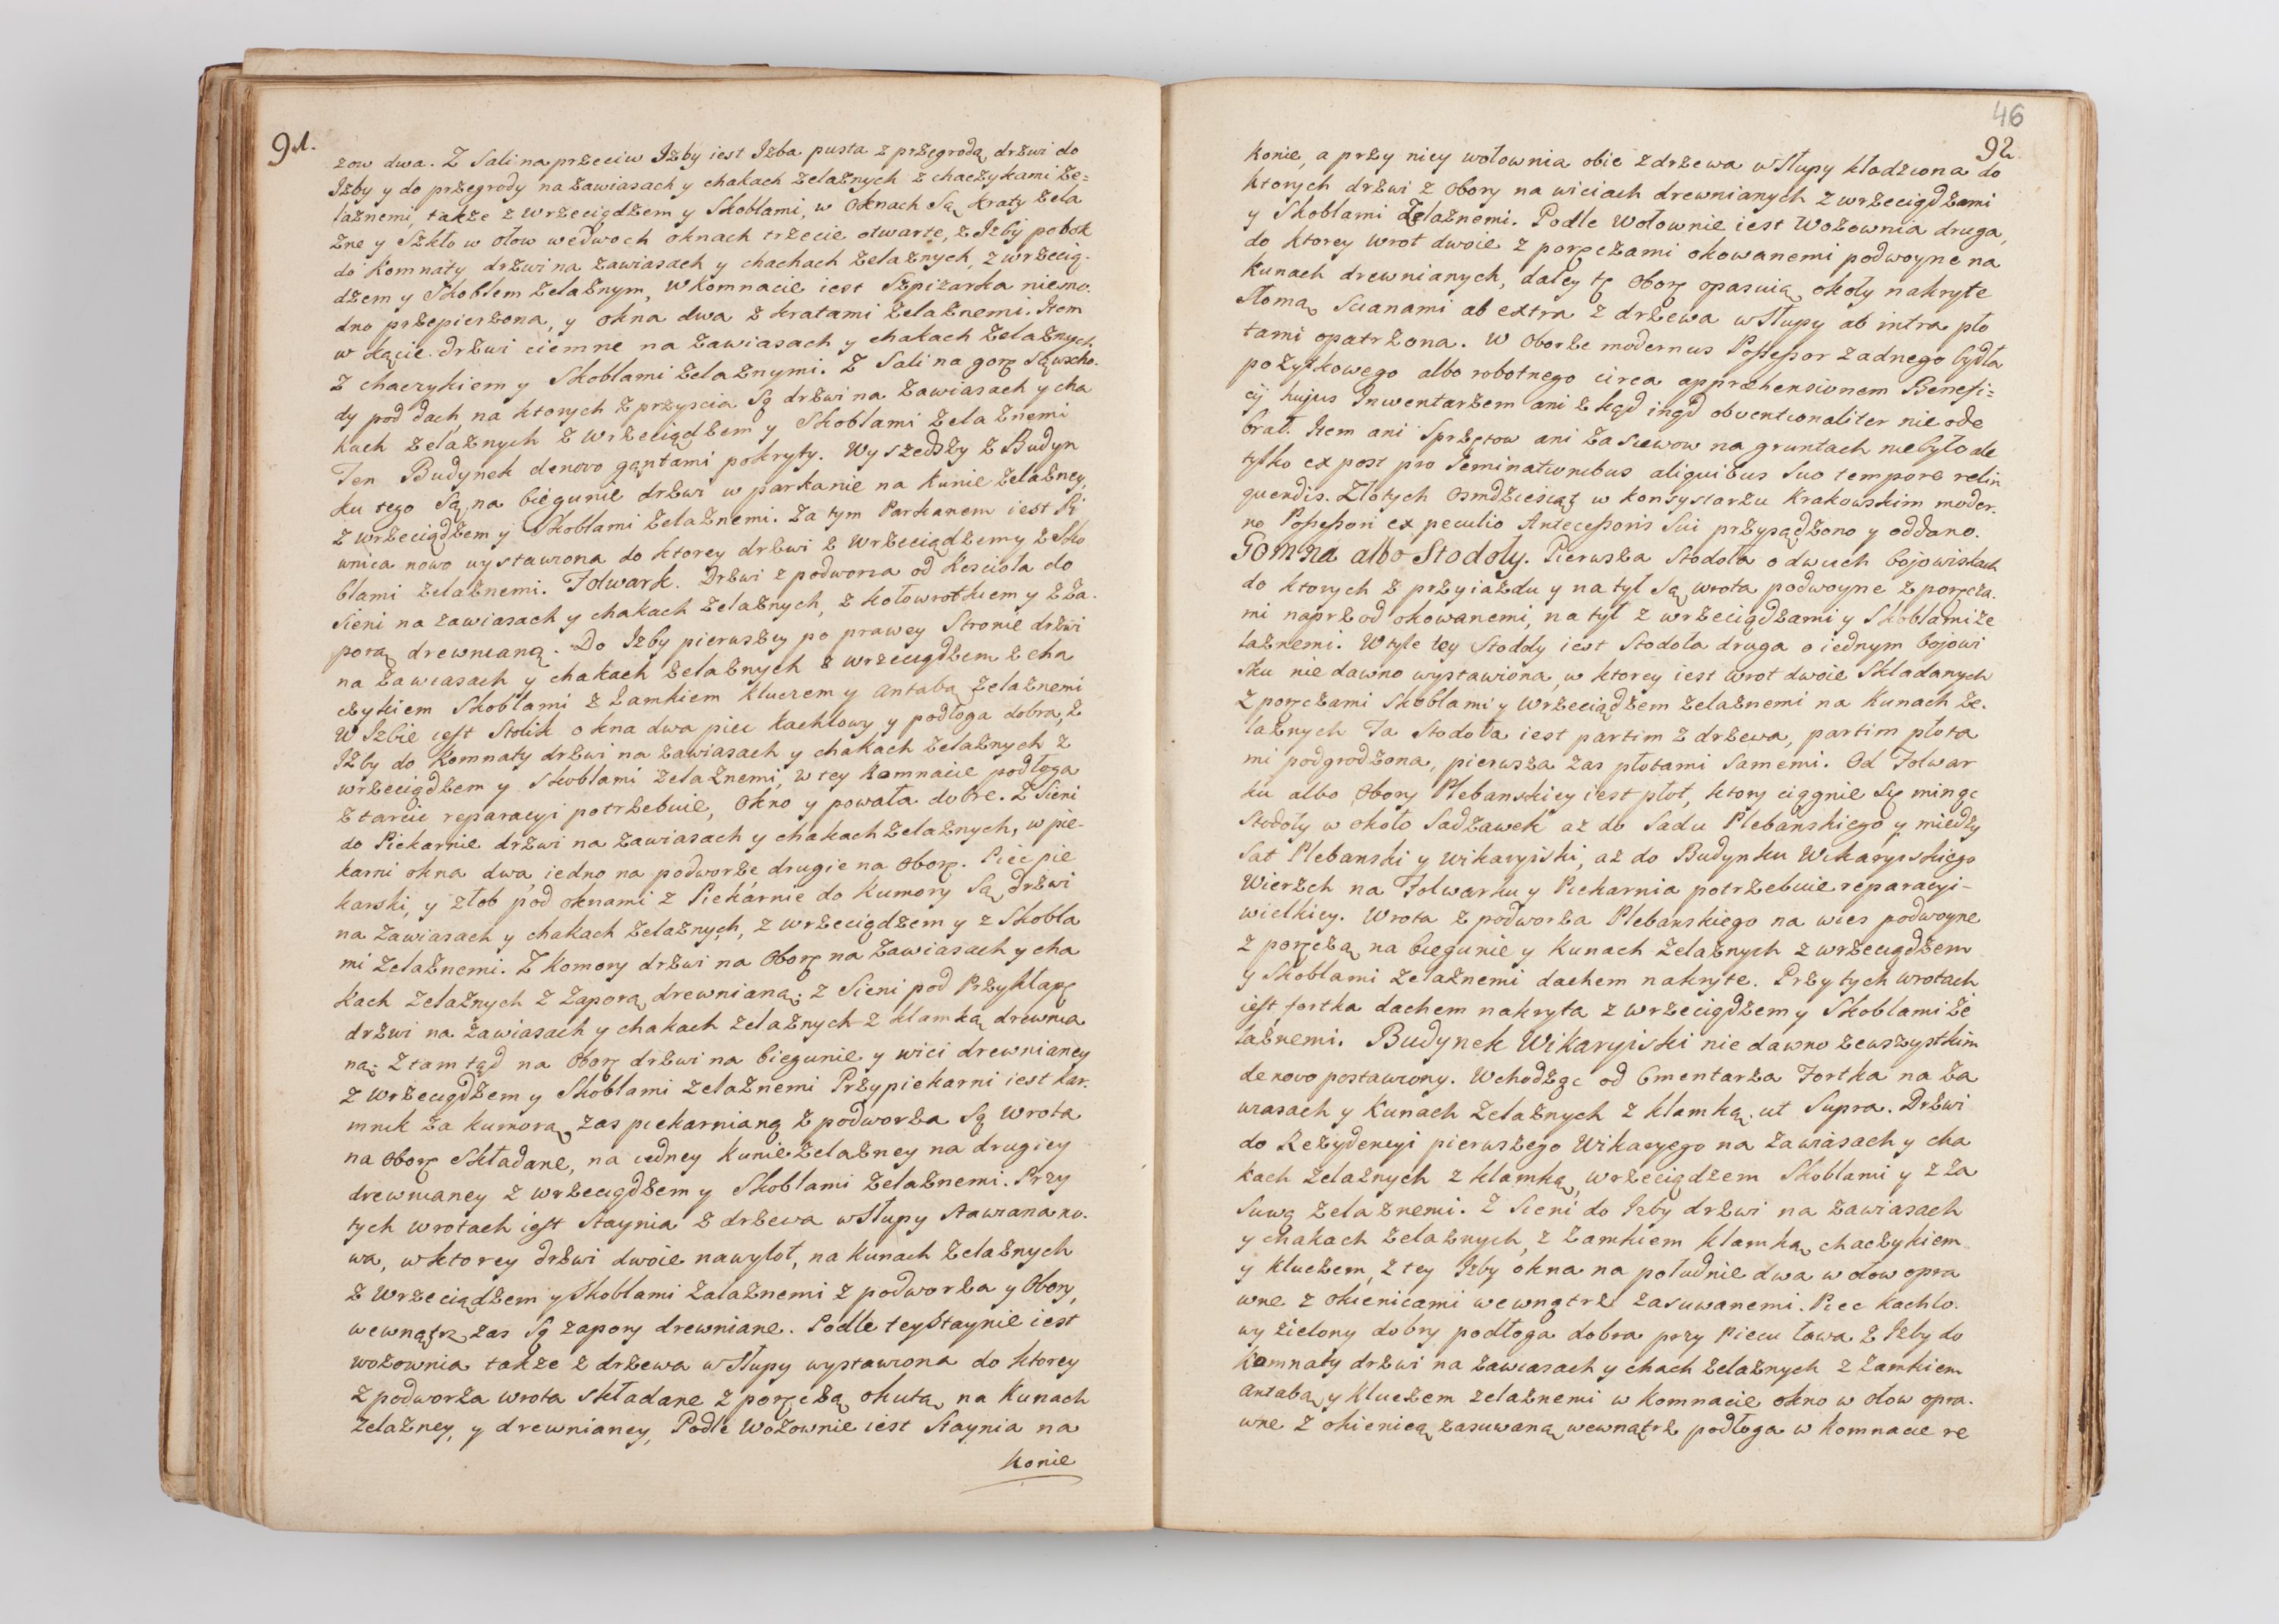 91.
zow dwa. Z Sali naprzeciw Izby iest Izba pusta z przegrodą drzwi do
Izby y do przegrody na zawiasach y chakach żelaznych z chaczykami że=
laznemi, także z wrzeciądzem y Skoblami, w oknach Są kraty żela
zne y Szkło w ołow wedwoch oknach trzecie otwarte, z Izby pobok
do Komnaty drzwi na zawiasach y chachach żelaznych, z wrzecią-
dzem y Skoblem żelaznym, W Komnacie iest Szpizarka niewno.
dno przepierzona, y okna dwa z kratami żelaznemi. Item
w kącie drzwi ciemne na zawiasach y chakach żelaznych
z chaczykiem y Skoblami żelaznymi. Z Sali na gorę Są wscho.
dy pod dach, na ktorych z przyscia Są drzwi na zawiasach y cha
kach żelaznych z wrzeciądzem y Skoblami żelaznemi
Ten Budynek denovo gątami pokryty. Wyszedszy z Budyn
ku tego Są na biegunie drzwi w parkanie na Kunie żelazney,
z wrzeciądzem y Skoblami żelaznemi. Za tym Parkanem iest Pi
wnica nowo wystawiona do ktorey drzwi z wrzeciądzem y z Sko
blami żelaznemi. Folwark. Drzwi z podworza od Kościoła do
Sieni na zawiasach y chakach żelaznych, z kołowrotkiem y z Za.
porą drewnianą. Do Izby pierwszey po prawey Stronie drzwi
na zawiasach y chakach żelaznych z wrzeciądzem z cha
czykiem Skoblami z Zamkiem kluczem y antabą żelaznemi
W Izbie iest Stolik okna dwa piec kachlowy y podłoga dobra, z
Izby do Komnaty drzwi na zawiasach y chakach żelaznych z
wrzeciądzem y Skoblami żelaznemi, w tey Komnacie podłoga
z tarcic reparacyi potrzebuie, Okno y powała dobre. Z Sieni
do Piekarnie drzwi na zawiasach y chakach żelaznych, w pie-
karni okna dwa iedno na podworze drugie na Oborę. Piec pie
karski, y złob pod oknami z Piekarnie do Kumory Są drzwi
na zawiasach y chakach żelaznych, z wrzeciądzem y z Skobla
mi żelaznemi. Z Komory drzwi na Oborę na zawiasach y cha
kach żelaznych z zaporą drewnianą; z Sieni pod Przykłapę
drzwi na zawiasach y chakach żelaznych z klamką drewnia
ną; Ztamtąd na Oborę drzwi na biegunie y wici drewnianey
z wrzeciądzem y Skoblami żelaznemi Przypiekarni iest kar.
mnik za kumorą zas piekarnianą z podworza Są Wrota
na Oborę składane, na iedney kunie żelazney na drugiey
drewnianey z wrzeciądzem y Skoblami żelaznemi. Przy
tych wrotach iest Staynia z drzewa w Słupy stawiana no.
wa, w ktorey drzwi dwoie nawylot, na kunach żelaznych
z wrzeciądzem y Skoblami żalaznemi z podworza y Obory,
wewnątrz zas Są zapory drewniane. Podle tey Staynie iest
wozownia także z drzewa w Słupy wystawiona do ktorey
z podworza wrota składane z poręczą okutą na Kunach
żelazney, y drewnianey, Podle Wozownie iest Staynia na
Konie
46
92
Konie, a przy niey wołownia obie z drzewa w Słupy kłodziona do
ktorych drzwi z Obory na wiciach drewnianych z wrzeciądzami
y Skoblami żelaznemi. Podle Wołownie iest Wozownia druga,
do ktorey wrot dwoie z poręczami okowanemi podwoyne na
Kunach drewnianych, daley tę Oborę opasuią okoły nakryte
słomą Scianami ab extra z drzewa w Słupy ab intra pło
tami opatrzona. W Oborze modernus Possessor zadnego bydła
pożytkowego albo robotnego circa appræhensionem Benefi=
cij hujus Inwentarzem ani z kąd inąd obventionaliter nie ode
brał. Item ani Sprzętow ani Zasiewow na gruntach niebyło ale
tylko ex post pro Seminationibus aliquibus Suo tempore relin
quendis. Złotych osmdziesiąt w konsystarzu krakowskim moder.
no Possessori ex peculio Antecessoris Sui przysądzono y oddano.
Gomna albo Stodoły. Pierwsza Stodoła o dwuch bojowiskach
do ktorych z przyiazdu y na tył Są wrota podwoyne z poręcza.
mi naprzod okowanemi, na tył z wrzeciądzami y Skoblami że
laznemi. Wtyle tey Stodoły iest Stodoła druga o iednym bojowi
sku nie dawno wystawiona, w ktorey iest wrot dwoie Składanych
z poręczami Skoblami y wrzeciądzem żelaznemi na Kunach że.
laznych Ta Stodoła iest partim z drzewa, partim płota
mi podgrodzona, pierwsza zas płotami Samemi. Od Folwar
ku albo Obory Plebanskiey iest płot, ktory ciągnie Się miniąc
Stodoły w około Sadzawek aż do Sadu Plebanskiego y miedzy
Sat Plebanski y wikaryiski, aż do Budynku Wikaryiskiego
Wierzch na Folwarku y Piekarnia potrzebuie reparacyi-
wielkiey. Wrota z podworza Plebanskiego na wies podwoyne
z poręczą na biegunie y Kunach żelaznych z wrzeciądzem
y Skoblami żelaznemi dachem nakryte. Przy tych wrotach
iest fortka dachem nakryta z wrzeciądzem y Skoblami że
laznemi. Budynek Wikaryiski nie dawno zewszystkim
de novo postawiony. Wchodząc od Cmentarza Fortka na za
wiasach y Kunach żelaznych z klamką. ut Supra. Drzwi
do Rezydencyi pierwszego Wikaryego na zawiasach y cha
kach żelaznych z klamką, wrzeciądzem Skoblami y z za
Suwą żelaznemi. Z Sieni do Izby drzwi na zawiasach
y chakach żelaznych, z Zamkiem klamką chaczykiem
y kluczem, z tey Izby okna na południe dwa w ołow opra
wne z okienicami wewnątrz zasuwanemi. Piec kachlo.
wy zielony dobry podłoga dobra przy Piecu ława z Izby do
Komnaty drzwi na zawiasach y chach żelaznych z Zamkiem
antabą y kluczem żelaznemi w Komnacie okno w ołow opra.
wne z okienicą zasuwaną wewnątrz podłoga w Komnacie re